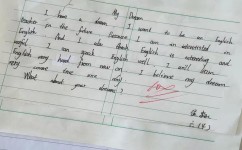 My Dream
I have a dream. I want to be an English
teacher in the future. Because I am an interested in
English. And I also think English is interesting and
useful. I can speak English well. I will learn
English very hard from now on. I believe my dream
very come true one day.
What about your dream?